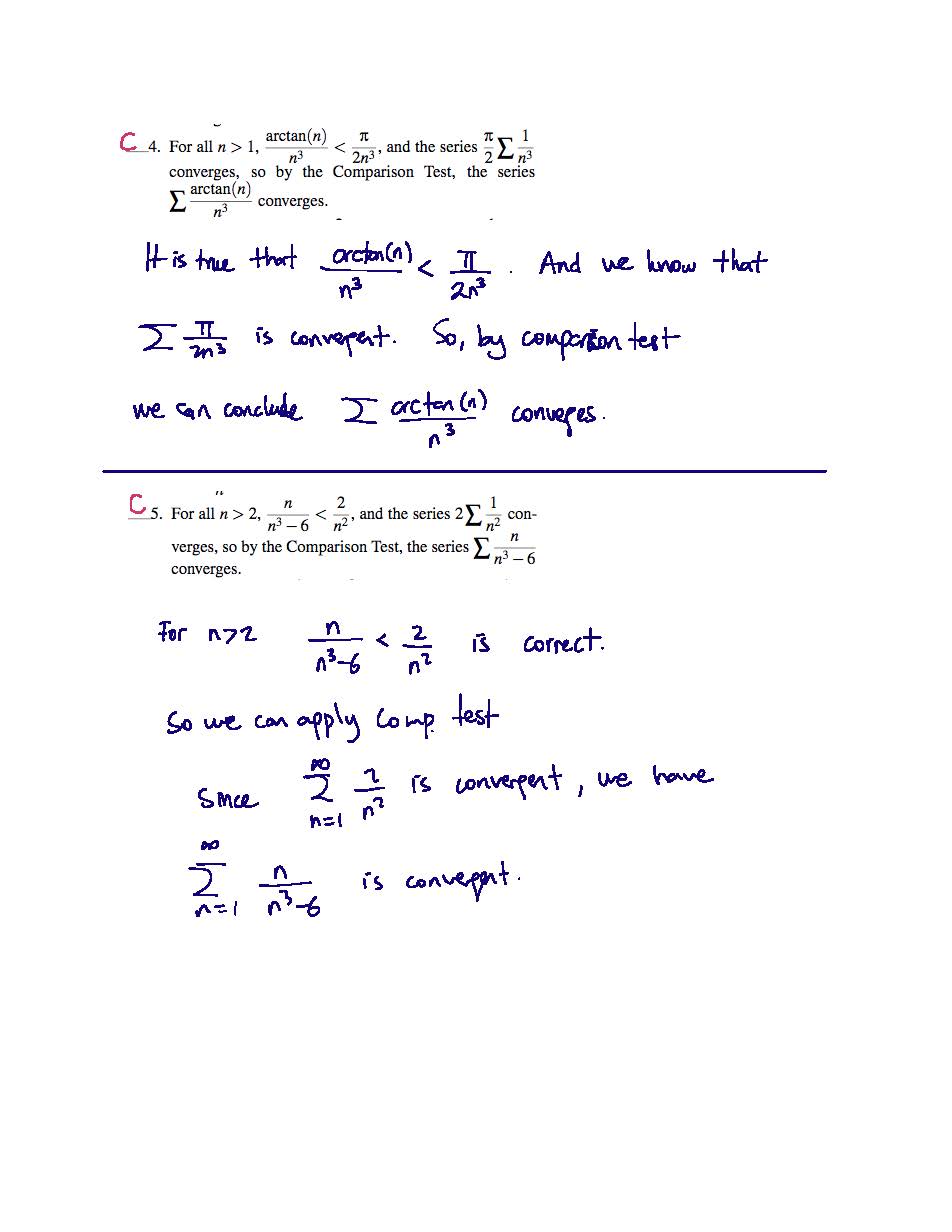 C 4. For all n > 1, arctan(n)/n³ < π/2n³, and the series π/2 ∑ 1/n³
converges, so by the Comparison Test, the series
∑ arctan(n)/n³ converges.
It is true that arctan(n)/n³ < π/2n³ . And we know that
∑ π/2n³ is convergent. So, by comparison test
we can conclude ∑ arctan(n)/n³ converges.
C 5. For all n > 2, n/n³ − 6 < 2/n², and the series 2∑ 1/n² con-
verges, so by the Comparison Test, the series ∑ n/n³ − 6
converges.
For n>2 n/n³-6 < 2/n² is correct.
So we can apply comp. test
Since ∞∑n=1 2/n² is convergent, we have
∞∑n=1 n/n³-6 is convergent.